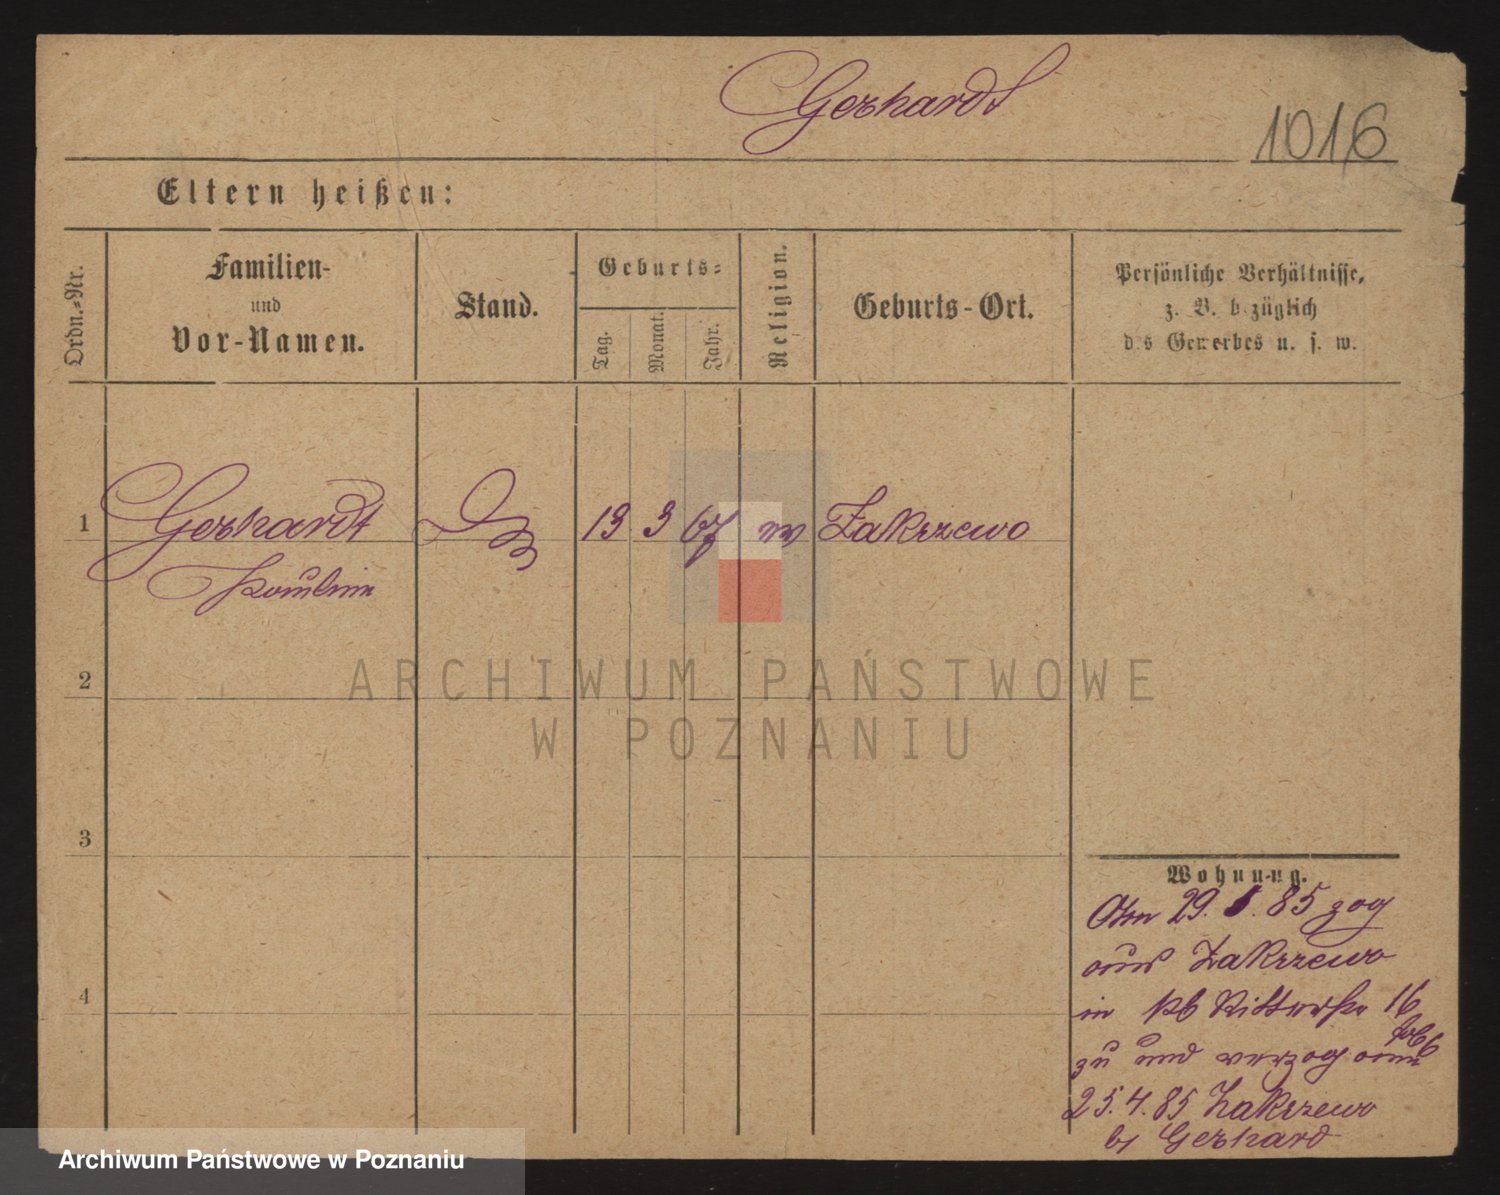 Gerhardt
1016
Eltern heißen:
Ordn.-Nr.
Familien-
und
Vor-Namen.
Stand.
Geburts-
Tag.
Monat.
Jahr.
Religion.
Geburts-Ort.
Persönliche Verhältnisse,
z. B. bezüglich
des Gewerbes u. s. w.
1 Gerhardt 13 3 67 Zakrzewo
Paulina
2
3
4
Wohnung.
Am 29. 85 zog
aus Zakrzewo
in Ritterstr 16
zu und verzog am
25.4.85 Zakrzewo
b/ Gerhard
ARCHIWUM PAŃSTWOWE
W POZNANIU
Archiwum Państwowe w Poznaniu